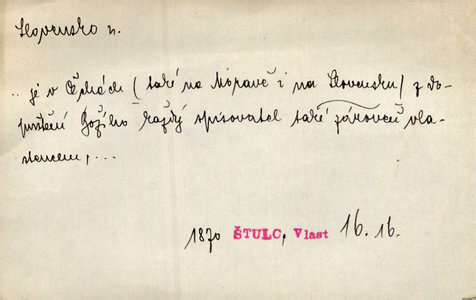 Slovensko n.
.. je v Čechách (také na Moravě i na Slovensku) z do-
puštění Božího každý spisovatel také zároveň vla-
stencem, ...
1870 ŠTULC, Vlast 16.16.